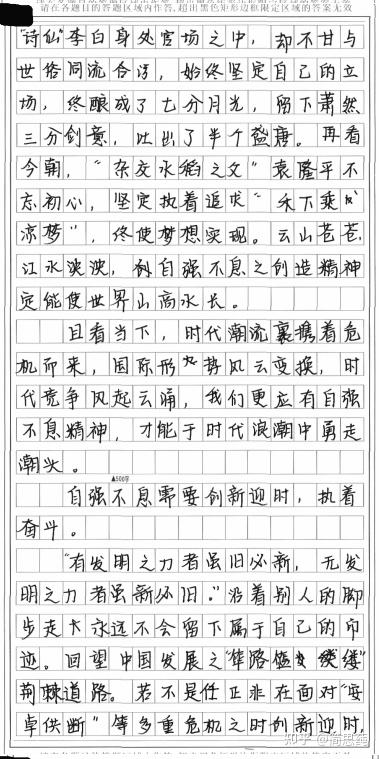 请在各题目的答题区域内作答,超出黑色矩形边框限定区域的答案无效
“诗仙”李白身处官场之中,却不甘与
世俗同流合污,始终坚定自己的立
场,终酿成了七分月光,留下萧然
三分剑意,吐出了半个盛唐。再看
今朝,“杂交水稻之父”袁隆平不
忘初心,坚定执着追求“禾下乘
凉梦”,终使梦想实现。云山苍苍,
江水泱泱,自强不息之创造精神
定能使世界山高水长。
且看当下,时代潮流裹携着危
机而来,国际形势风云变换,时
代竞争风起云涌,我们更应有自强
不息精神,才能于时代浪潮中勇走
潮头。
▲500字
自强不息需要创新迎时,执着
奋斗。
“有发明之力者虽旧必新,无发
明之力者虽新必旧。”沿着别人的脚
步走永远不会留下属于自己的印
迹。回望中国发展之“筚路蓝缕”
荆棘道路。若不是任正非在面对“安
卓供断”等多重危机之时创新迎时,
知乎 @简思莼